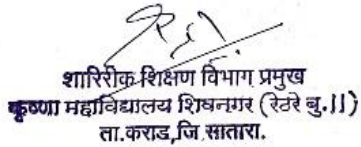 शारिरीक शिक्षण विभाग प्रमुख
कृष्णा महाविद्यालय शिवनगर (रेटरे बु.||)
ता.कराड,जि.सातारा.